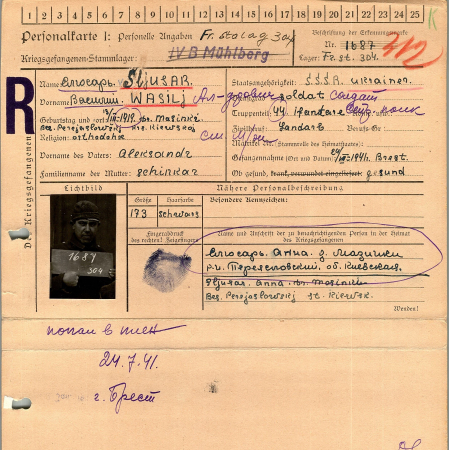 1 2 3 4 5 6 7 8 9 10 11 12 13 14 15 16 17 18 19 20 21 22 23 24 25
K
Personalkarte I: Personelle Angaben
Fr. stalag 304
Beschriftung der Erkennungsmarke
Kriegsgefangenen-Stammlager:
IV B Mühlberg
Nr. 1687
Lager: Fr. st. 304.
Name: Слюсарь SljUSAR
Staatsangehörigkeit: SSSR ukrainer.
Vorname: Василий WASILJ
Ал-дрович
soldat солдат
Geburtstag und -ort: 1919. Masinki
Truppenteil: 44. ifanderie
Bes. Perejaslowskj Kiewskaj
Zivilberuf: Landarb Berufs Gr.:
Religion: orthodohs
Matrikel Nr. (Stammrolle des Heimatstaates):
Gefangennahme (Ort und Datum): 24/VII-1941. Brest.
Vorname des Vaters: Aleksandr
Ob gesund, krank, verwundet eingeliefert: gesund
Familienname der Mutter: schinkar
Des Kriegsgefangenen
R
Lichtbild
Nähere Personalbeschreibung
Größe Haarfarbe Besondere Kennzeichen:
173 schwarz
1687
304
Fingerabdruck
des rechten! Zeigefingers
Name und Anschrift der zu benachrichtigenden Person in der Heimat
des Kriegsgefangenen
Слюсарь Анна д. Мазинки
р-н Переясловский, об. Киевская.
Sljusar. Anna. Masinki
Bes. Perejaslowskj st. Kiewsk.
Wenden!
попал в плен
24.7.41.
г. Брест